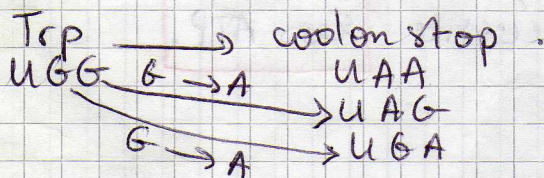 Trp → codon stop.
UGG G → A UAA
UAG
G → A UGA